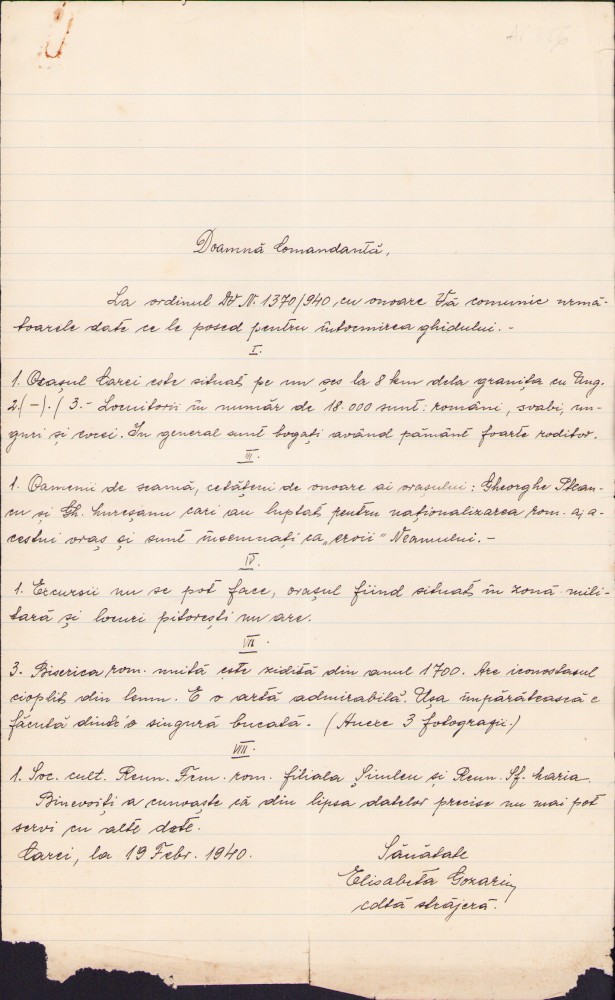 Doamnă Comandantă,
La ordinul DV N. 1370/940, cu onoare Vă comunic urmă-
toarele date ce le posed pentru întocmirea ghidului. -
I.
1. Orașul Carei este situat pe un șes la 8 km dela granița cu Ung.
2.(-)./ 3.- Locuitorii în număr de 18.000 sunt: români, svabi, un-
guri și evrei. In general sunt bogați având pământ foarte roditor.
III.
1. Oamenii de seamă, cetățeni de onoare ai orașului: Gheorghe
cu și Gh. Mureșanu cari au luptat pentru naționalizarea rom. a, a-
cestui oraș și sunt însemnați ca „eroii" Neamului. -
IV.
1. Excursii nu se pot face, orașul fiind situat în zonă mili-
tară și locuri pitorești nu are.
VII.
3. Biserica rom. unită este zidită din anul 1700. Are iconostasul
cioplit din lemn. E o artă admirabilă. Ușa împărătească e
făcută dintr'o singură bucată. - (Anexe 3 fotografii.)
VIII.
1. Soc. cult. Reun. Fem. rom. filiala Șimleu și Reun. Sf. Maria.
Binevoiți a cunoaște că din lipsa datelor precise nu mai pot
servi cu alte date.
Carei, la 19 Febr. 1940.
Sănătate
Elisabeta
cdtă străjeră.